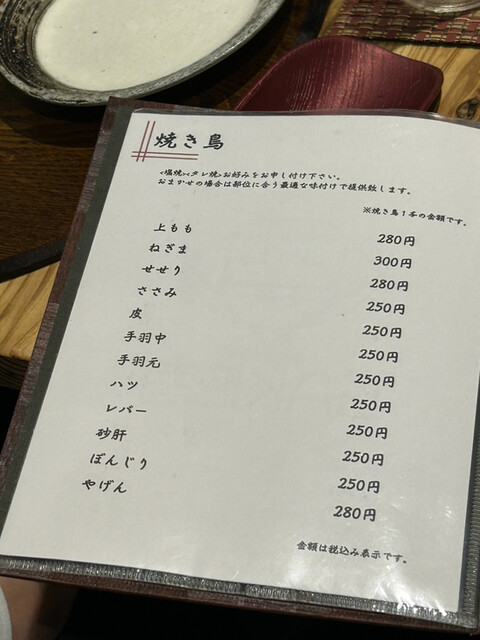 焼き鳥
<塩焼><タレ焼>お好みをお申し付け下さい。
おまかせの場合は部位に合う最適な味付けで提供致します。
※焼き鳥1本の金額です。
上もも 280円
ねぎま 300円
せせり 280円
ささみ 250円
皮 250円
手羽中 250円
手羽元 250円
ハツ 250円
レバー 250円
砂肝 250円
ぼんじり 250円
やげん 280円
金額は税込み表示です。